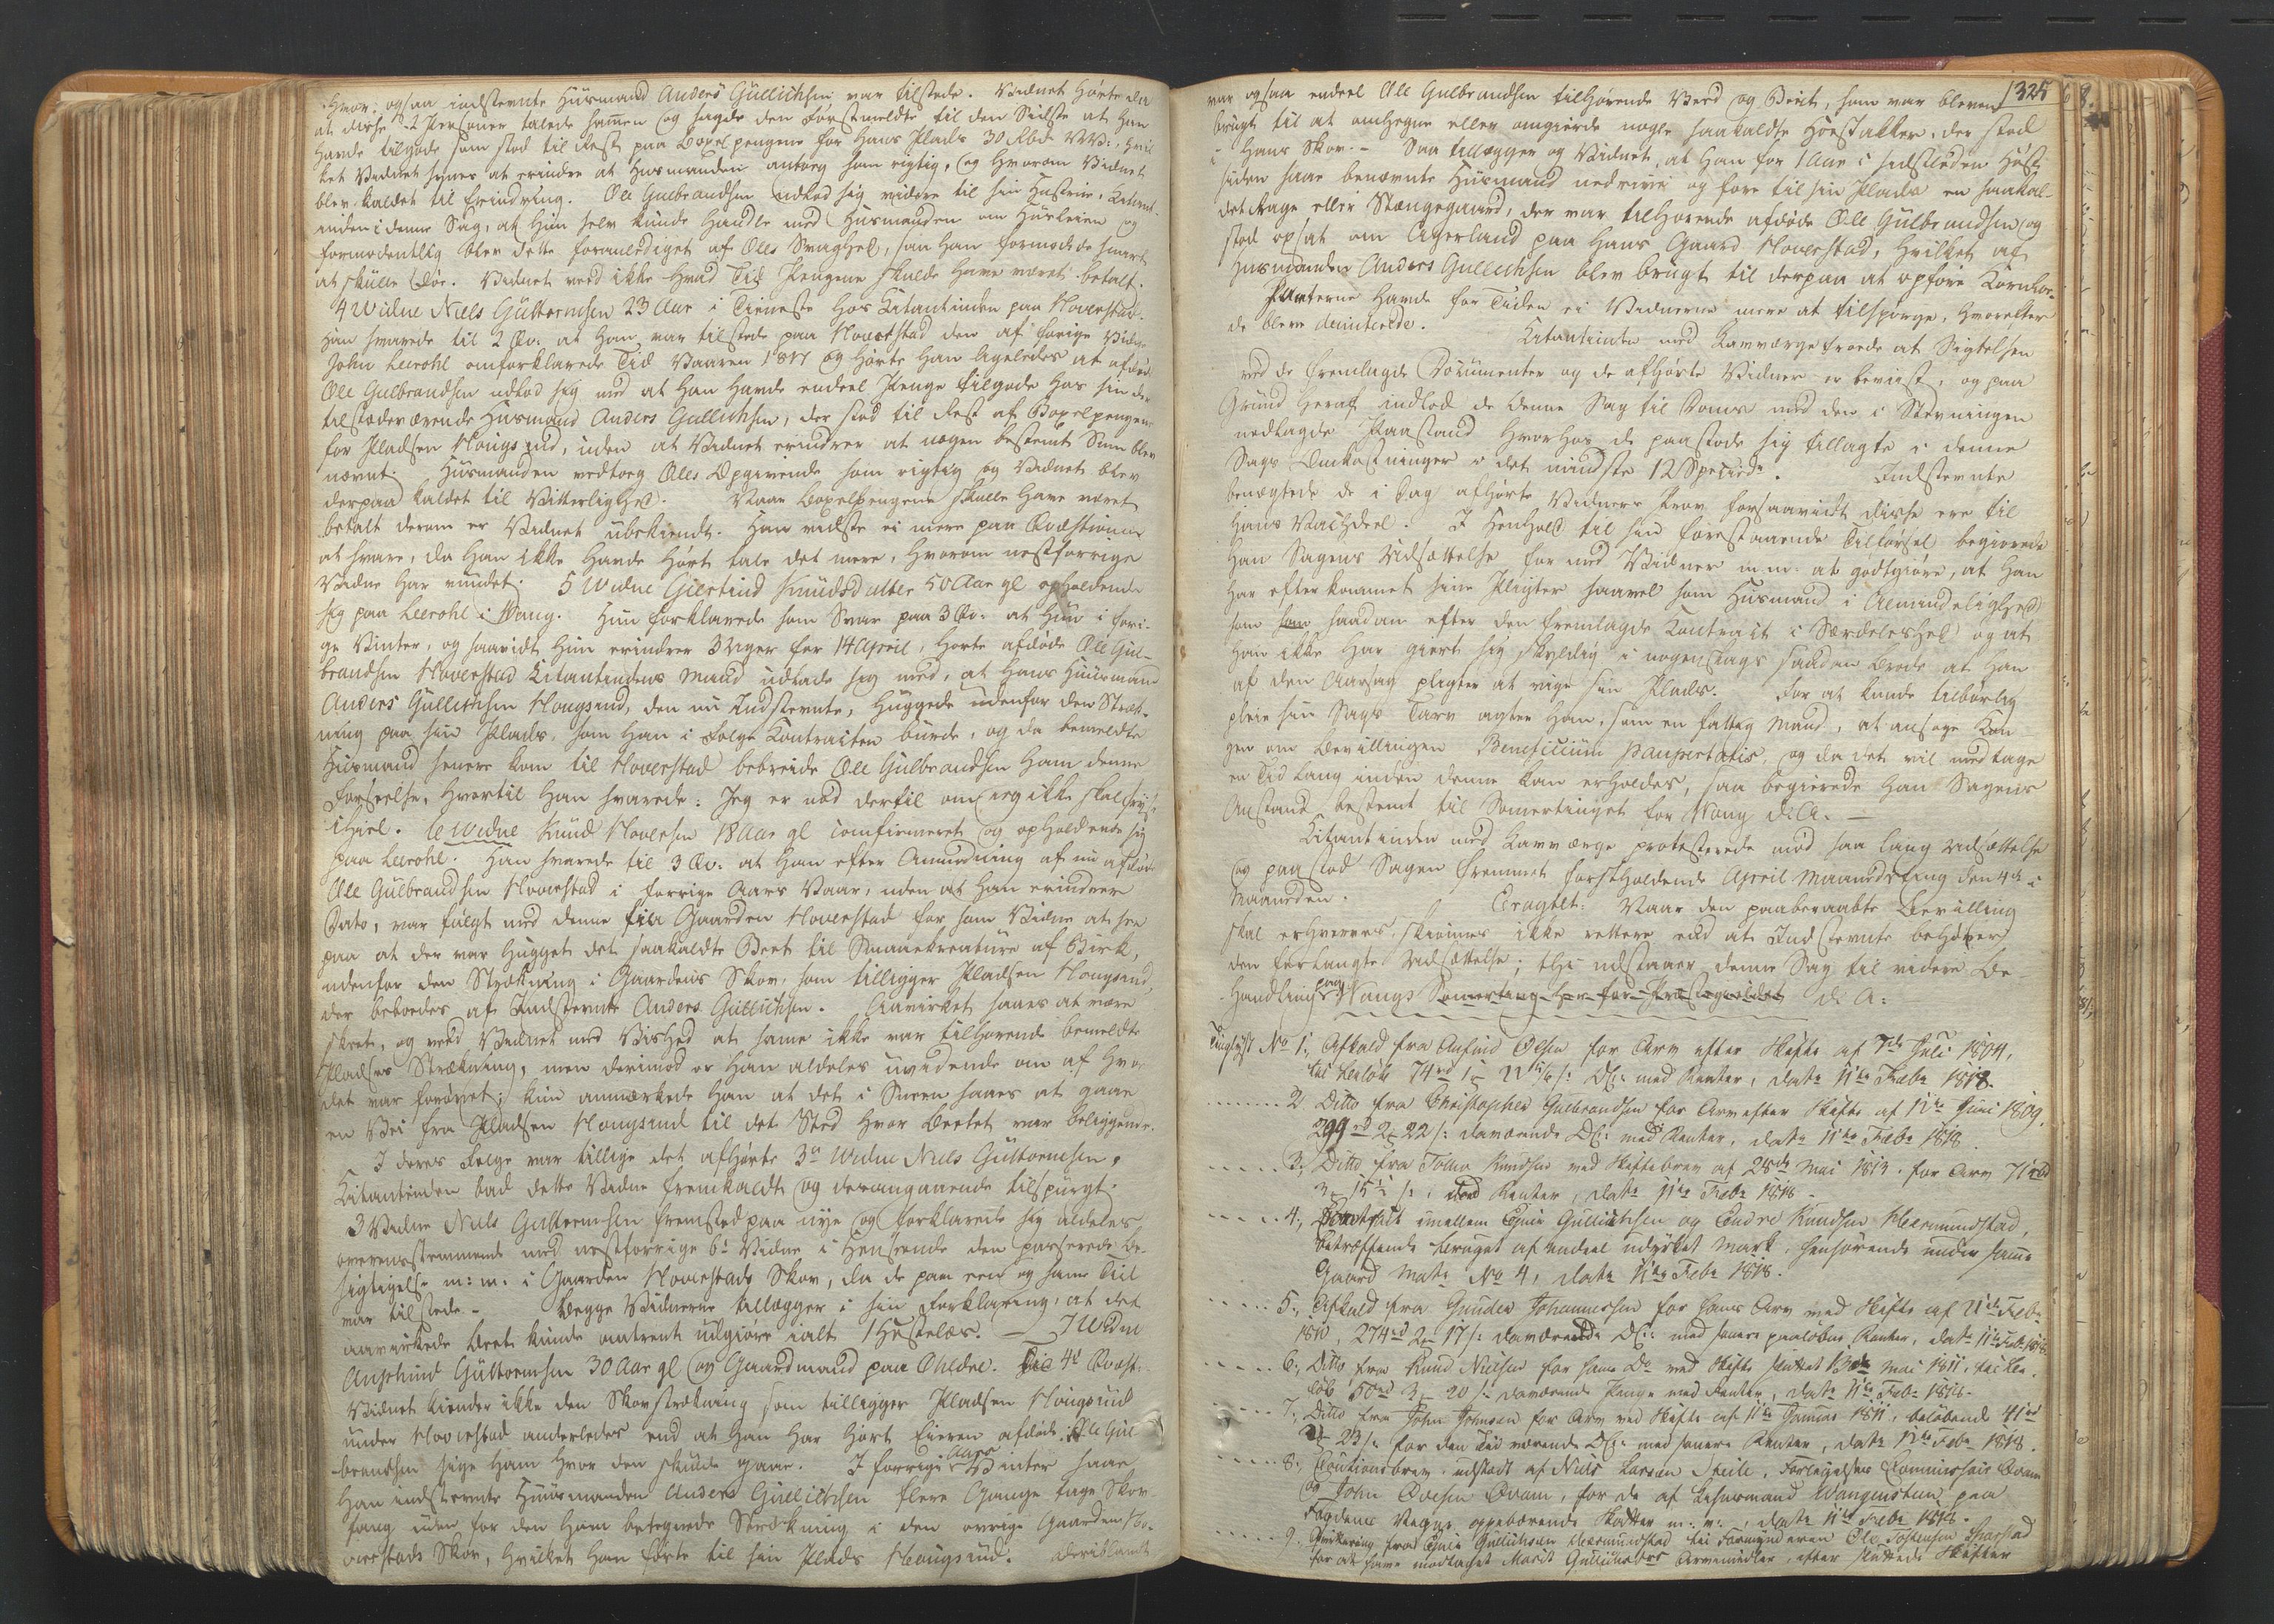 hvor ogsaa indstevnte Huusmand Anders Gullichsen var tilstede. Vidnet hørte da
at disse 2 Personer talede sammen og sagde den Førstmeldte til den Sidste at han
havde tilgode som stod til Rest paa Bøxelpengene for Hans Plads 30 Rbd. NV., hvil
ket Vidnet synes at erindre at Husmanden antog som rigtig, og hvorom Vidnet
blev kaldet til Erindring. Ole Gulbrandsen udlod sig videre til sin Hustrue, Citant
inden i denne Sag, at Hun selv kunde handle med Husmanden om Huusleien og
formodentlig blev dette foranlediget af Oles Svaghed, saa han formodede snart
at skulle døe. Vidnet veed ikke hvad Tid Pengene skulde have været betalt.
4 Widne Niels Guttormsen 23 Aar i Tieneste hos Citantinden paa Hoverstad.
Han svarede til 2 Qv. at han var tilstede paa Hoverstad den af forige Vidne
John Leerohl omforklarede Tid Vaaren 1817 og hørte han ligeledes at afdøde
Ole Gulbrandsen udlod sig med at han havde endeel Penge tilgode hos sin der
tilstedeværende Husmand Anders Gullichsen, der stod til Rest af Bøxelpengene
for Pladsen Hougsund, uden at Vidnet erindrer at nogen bestemt Sum blev
nævnt. Husmanden vedtoeg Oles Opgivende som rigtig og Vidnet blev
derpaa kaldet til Vitterlighed. Naar Bøxelpengene skulle have været
betalt derom er Vidnet ubekiendt. Han vidste ei mere paa Qvæstionen
at svare, da han ikke havde hørt tale det mere, hvorom nestforrige
Vidne har vundet. 5 Widne Giertrud Knudsdatter 50 Aar gl opholdende
sig paa Leerohl i Wang. Hun forklarede som Svar paa 3 Qv. at Hun i forri-
ge Vinter, og saavidt Hun erindrer 3 Uger før 14 April, hørte afdøde Ole Gul-
brandsen Hoverstad Citantindens Mand udlade sig med, at hans Huusmand
Anders Gullichsen Hougsund, den nu Indstevnte, huggede udenfor den Stræk-
ning paa sin Plads, som han i Følge Contracten burde, og da bemeldte
Huusmand senere kom til Hoverstad bebreide Ole Gulbrandsen ham denne
Forseelse, hvortil han svarede: Jeg er nød dertil om jeg ikke skal fryse
ihiel. 6 Widne Knud Hoversen 18 Aar gl confirmeret og opholdende sig
paa Leerohl. Han svarede til 3 Qv. at han efter Anmodning af nu afdøde
Ole Gulbrandsen Hoverstad i forrige Aars Vaar, uden at han erindrer
Dato, var fulgt med denne fra Gaarden Hoverstad for som Vidne at see
paa at der var hugget det saakaldte Beet til Smaaekreature af Birk,
udenfor den Strækning i Gaardens Skov, som tilligger Pladsen Hougsund,
der beboedes af Indstevnte Anders Gullichsen. Aavirket saaes at være
skeet, og veed Vidnet med Vished at samme ikke var tilhørende bemeldte
Pladses Strækning, men derimod er han aldeles uvidende om af hvem
det var forøvet; kun anmærkede han at det i Sneen saaes at gaae
en Vei fra Pladsen Hougsund til det Sted hvor Beetet var beliggende.
I deres Følge var tillige det afhørte 3de Widne Niels Guttormsen,
Citantinden bad dette Vidne fremkaldt og derom tilspurgt.
3 Vidne Niels Guttormsen fremstod paa nye og forklarede sig aldeles
overensstemmende med nestforrige 6te Vidne i Henseende den passerede Be-
sigtigelse m: m: i Gaarden Hoverstads Skov, da de paa een og samme Tid
var tilstede. Begge Vidnerne tillægger i sin Forklaring, at det
aavirkede Beet kunde omtrent udgiøre ialt 1 Hestelæs. 7 Widne
Anfind Guttormsen 30 Aar gl og Gaardmand paa Ohldre. Til 4de Qvæst.
Vidnet kiender ikke den Skovstrækning som tilligger Pladsen Hougsund
under Hoverstad anderledes end at han har hørt Eieren afdøde Ole Gul
brandsen sige ham hvor den skulde gaae. I forrige Aars Vinter saae
han indstevnte Huusmanden Anders Gullichsen flere Gange tage Skov-
fang uden for den ham betegnede Strækning i den øvrige Gaarden Ho-
verstads Skov, hvilket han førte til sin Plads Hougsund. Deriblandt
325
var ogsaa endeel Ole Gulbrandsen tilhørende Veed og Beit, som var bleven
brugt til at omhegne eller omgierde nogle saakaldte Høestakker, der stod
i hans Skov. Saa tillægger og Vidnet, at han for 1 Aar i sidstleden Høst
siden saae benævnte Huusmand nedrive og føre til sin Plads en saakal-
det Rage eller Stængegaard, der var tilhørende afdøde Ole Gulbrandsen og
stod opsat om Agerland paa hans Gaard Hoverstad, hvilket af
Husmanden Anders Gullichsen blev brugt til derpaa at opføre Korn
Parterne havde for Tiden ei Vidnerne mere at tilspørge, hvorefter
de bleve demitterede. Citantinden med Lavværge troede at Sigtelsen
ved de fremlagde Documenter og de afhørte Vidner er beviist, og paa
Grund heraf indlod de denne Sag til Doms med den i Stevningen
nedlagde Paastand hvorhos de paastode sig tillagte i denne
Sags Omkostninger i det mindste 12 Speciedr. Indstevnte
benægtede de i Dag afhørte Vidners Prov forsaavidt disse ere til
hans Nachdeel. I Henhold til sin foranstaaende Tilførsel begierede
han Sagens Udsættelse for med Vidner m.m. at godtgiøre, at han
har efterkommet sine Pligter saavel som Husmand i Almindelighed
som saadan efter den fremlagde Contract i Særdeleshed og at
han ikke har giort sig skyldig i nogenslags saadan Brøde at han
af den Aarsag pligter at vige sin Plads. For at kunde tilbørlig
pleie sin Sags Tarv agter han, som en fattig Mand, at ansøge Kon-
gen om Bevillingen Beneficium paupertatis, og da det vil medtage
en Tid lang inden denne kan erholdes, saa begierede han Sagens
Anstand bestemt til Sommertinget for Wang d. A.
Citantinden med Lavværge protesterede mod saa lang Udsættelse
og paastod Sagen fremmet førstholdende April Maanedsting den 4de i
Maaneden. Eragtet: Naar den paaberaabte Bevilling
skal erhverves skiønnes ikke rettere end at Indstevnte behøver
den forlangte Udsættelse; thi udstaaer denne Sag til videre Be-
handling paa Wangs Sommerting her for Præstegieldet d. A.
Tinglyst No 1, Afkald fra Anfind Olsen for Arv efter Skifte af 7de Juli 1804,
til Beløb 74 rd 1 22 /: DC: med Renter, dat. 11te Febr 1818.
2 Ditto fra Christopher Gulbrandsen for Arv efter Skifte af 12te Juni 1809.
299 rd 2 22 /: daværende DC: med Renter, dat. 11te Febr 1818.
3, Ditto fra Tollev Knudsen ved Skiftebrev af 28de Mai 1813. for Arv 71 rbd
3 15 /:, med Renter, dat. 11te Febr 1818.
4, Contract imellem Gullichsen og Endre Knudsen Hermundstad,
betræffende Bruget af endeel udyrket Mark, henhørende under samme
Gaard Matr. No 4, dat. 11te Febr 1818.
5, Afkald fra Gunder Johannessen for hans Arv med Skifte af 21de Febr
1810, 274 rd 2 17 /: daværende DC: med senere paaløbne Renter, dat. 11te Febr 1818.
6, Ditto fra Knud Nielsen for hans Do ved Skifte sluttet 13de Mai 1811, til Be-
løb 50 rd 3 20 /: daværende Penge med Renter, dat. 11te Febr 1818.
7, Ditto fra John Johnsen for Arv ved Skifte af 11te Januar 1811, beløbende 41 rd
23 /: for den Tid værende DC: med senere Renter, dat. 12te Febr 1818.
8, Cautionsbrev udstædt af Niels Larsen Steile, Forligelses Commissair Qvam
og John Olesen Qvam, for de af Lehnsmand Wangensteen paa
Fogdens Vegne oppebærende Skatter m: v:, dat. 11te Febr 1818.
9, Qvittering fra Gullichsen Hermundstad til Formynderen Ole Tostensen
for at have modtaget Marit Gullichsdtrs Arvemidler, efter sluttede Skifter